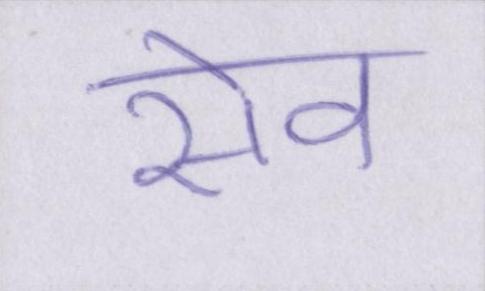 सेव